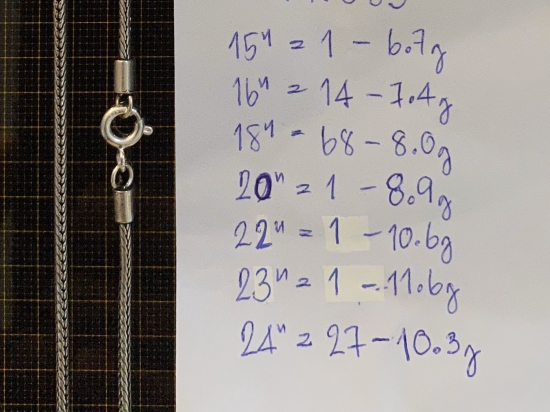 15" = 1 - 6.7g
16" = 14 - 7.4g
18" = 68 - 8.0g
20" = 1 - 8.9g
22" = 1 - 10.6g
23" = 1 - 11.6g
24" = 27 - 10.3g